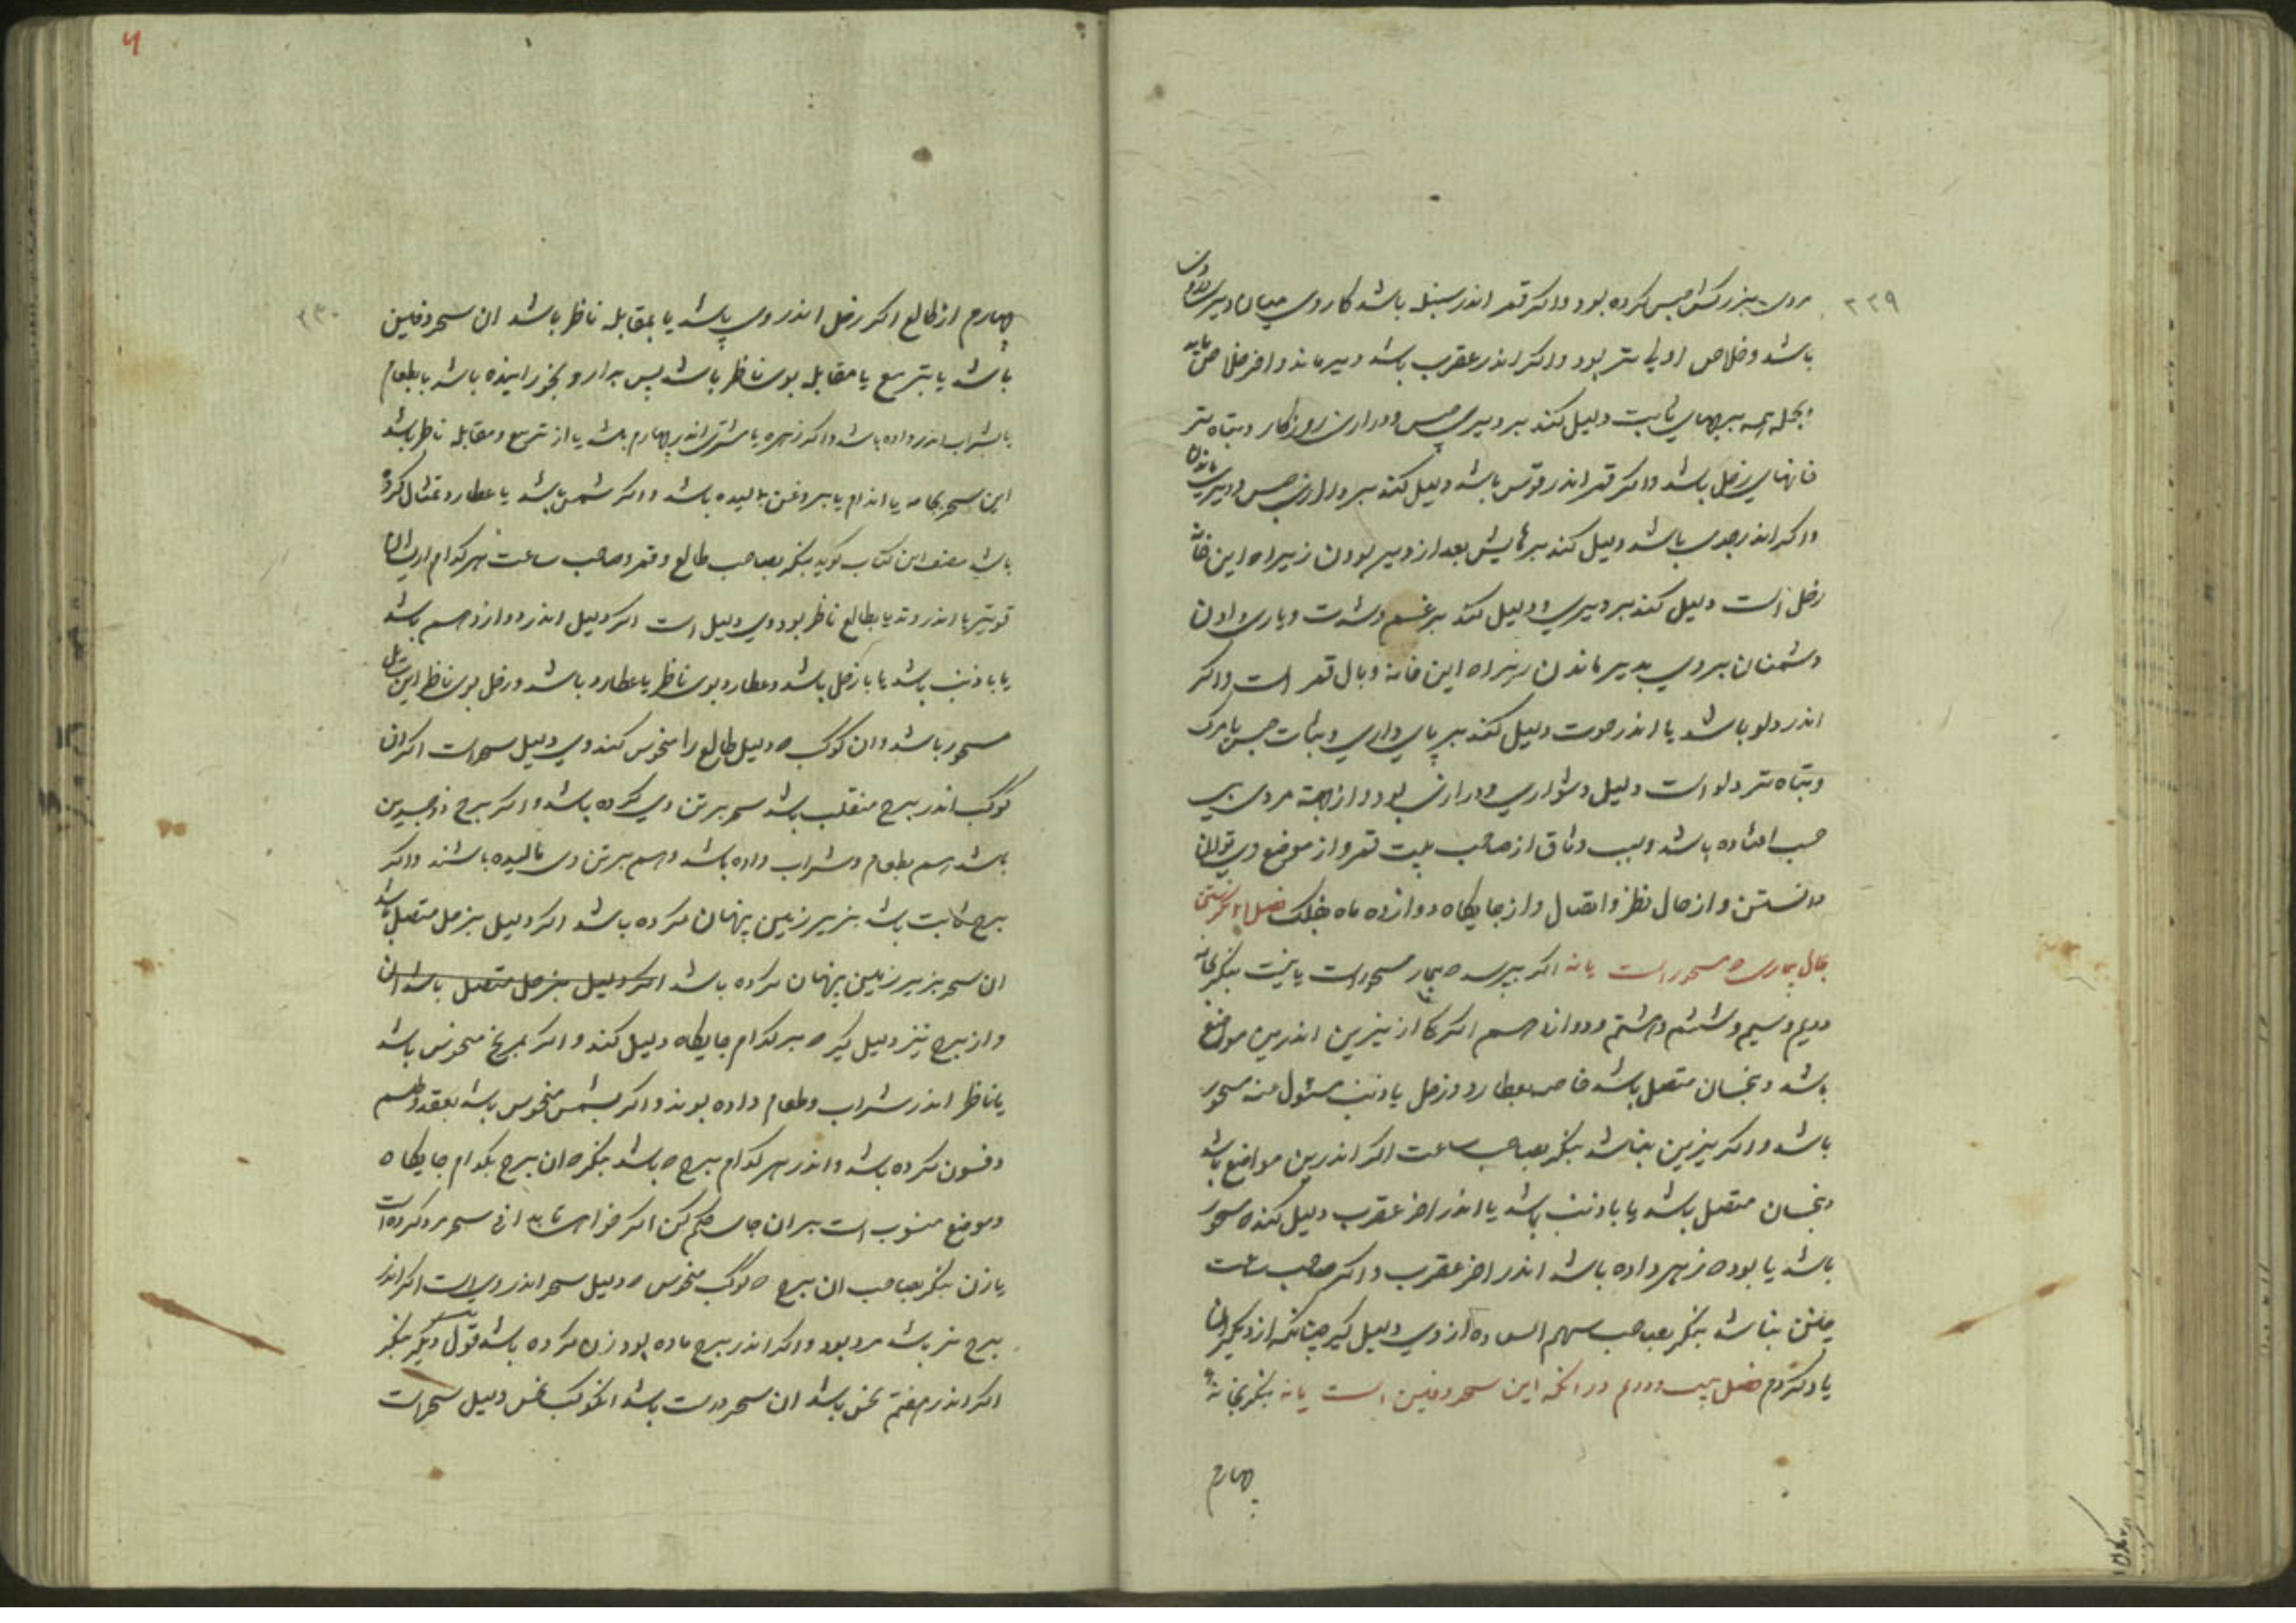 ۲۲۹
باشد و خلاص او بی‌تر بود و اگر اندر عقرب باشد دیر ماند و آخر خلاص یابد
و بجمله همه برجهای ثابت دلیل کند بر دیری حبس و درازی روزگار و تباه‌تر
خانهای زحل باشد و اگر قمر اندر قوس باشد دلیل کند بر درازی حبس و دیری ماندن
و اگر اندر جدی باشد دلیل کند بر رهایش بعد از دیر بودن زیراه این خانه
زحل است دلیل کند بر دیری و دلیل کند بر غم و شدت و یاری دادن
دشمنان بروی بدیر ماندن زیراه این خانه وبال قمر است و اگر
اندر دلو باشد یا اندر حوت دلیل کند بر پای داری و ثبات حبس یا مرگ
و تباه‌تر دلو است دلیل دشواری و درازی بود و از جهة مردی
حبس افتاده باشد و سبب وثاق از صاحب بیت قمر و از موضع وی توان
دانستن و از حال نظر و اتصال و از جایگاه دوازده ماه فلک فصل نگرستن
بحال بیمار ه مسحور است یا نه اگر بپرسد ه بیمار مسحور است یا نیست بنگر بخانه
دویم و سیم و ششم و هشتم و دوازدهم اگر یکی از نیرین اندرین مواضع
باشد و بنحسان متصل باشد خاصه بعطارد و زحل یا ذنب مسئول عنه مسحور
باشد و اگر نیرین نباشد بنگر بصاحب ساعت اگر اندرین مواضع باشد
و بنحسان متصل باشد یا با ذنب باشد یا اندر آخر عقرب دلیل کند ه مسحور
باشد یا بود ه زهر داده باشد اندر آخر عقرب و اگر صاحب ساعت
چنین نباشد بنگر بصاحب سهم السعاده از وی دلیل گیر چنانکه از دیگران
یاد کردم فصل بیست و دوم در آنکه این سحر دفین است یا نه بنگر بخانه
چهارم
۲۳۰
چهارم از طالع اگر زحل اندر وی باشد یا بمقابله ناظر باشد آن سحر دفین
باشد یا بتربیع یا مقابله بوی ناظر باشد پس بدار و بخورانیده باشد یا بطعام
یا بشراب اندر داده باشد و اگر زهره یا مشتری اندر چهارم باشد یا از تربیع و مقابله ناظر باشد
این سحر بجامه یا اندام یا بروغن مالیده باشد و اگر شمس باشد یا عطارد تمثال کرده
باشد مصنف این کتاب گوید بنگر بصاحب طالع و قمر و صاحب ساعت هر کدام ازیشان
قویتر یا اندر وتد یا بطالع ناظر بود وی دلیل است اگر دلیل اندر دوازدهم باشد
یا با ذنب باشد یا با زحل باشد و عطارد بوی ناظر یا عطارد باشد و زحل بوی ناظر این سائل
مسحور باشد و آن کوکب ه دلیل طالع را منحوس کند وی دلیل سحر است اگر آن
کوکب اندر برج منقلب باشد سحر بر تن وی کرده باشد و اگر برج ذوجسدین
باشد هم بطعام و شراب داده باشد و هم بر تن وی مالیده باشند و اگر
برج ثابت باشد بزیر زمین پنهان کرده باشد اگر دلیل بزحل متصل باشد
آن سحر بزیر زمین پنهان کرده باشد اگر دلیل بزحل متصل باشد آن
و از برج نیز دلیل گیر ه بر کدام جایگاه دلیل کند و اگر بمریخ منحوس باشد
یا ناظر اندر شراب و طعام داده بوند و اگر بشمس منحوس باشد بعقد و طلسم
و فسون کرده باشد و اندر هر کدام برج ه باشد بنگر ه آن برج بکدام جایگاه
و موضع منسوب است بر آن جای حکم کن اگر خواهی تا بدانی سحر مرد کرده است
یا زن بنگر بصاحب آن برج ه کوکب منحوس ه دلیل سحر اندر وی است اگر اندر
برج نر باشد مرد بود و اگر اندر برج ماده بود زن کرده باشد قول دیگر بنگر
اگر اندر هفتم نحس باشد آن سحر درست باشد آن کوکب نحس دلیل سحر است